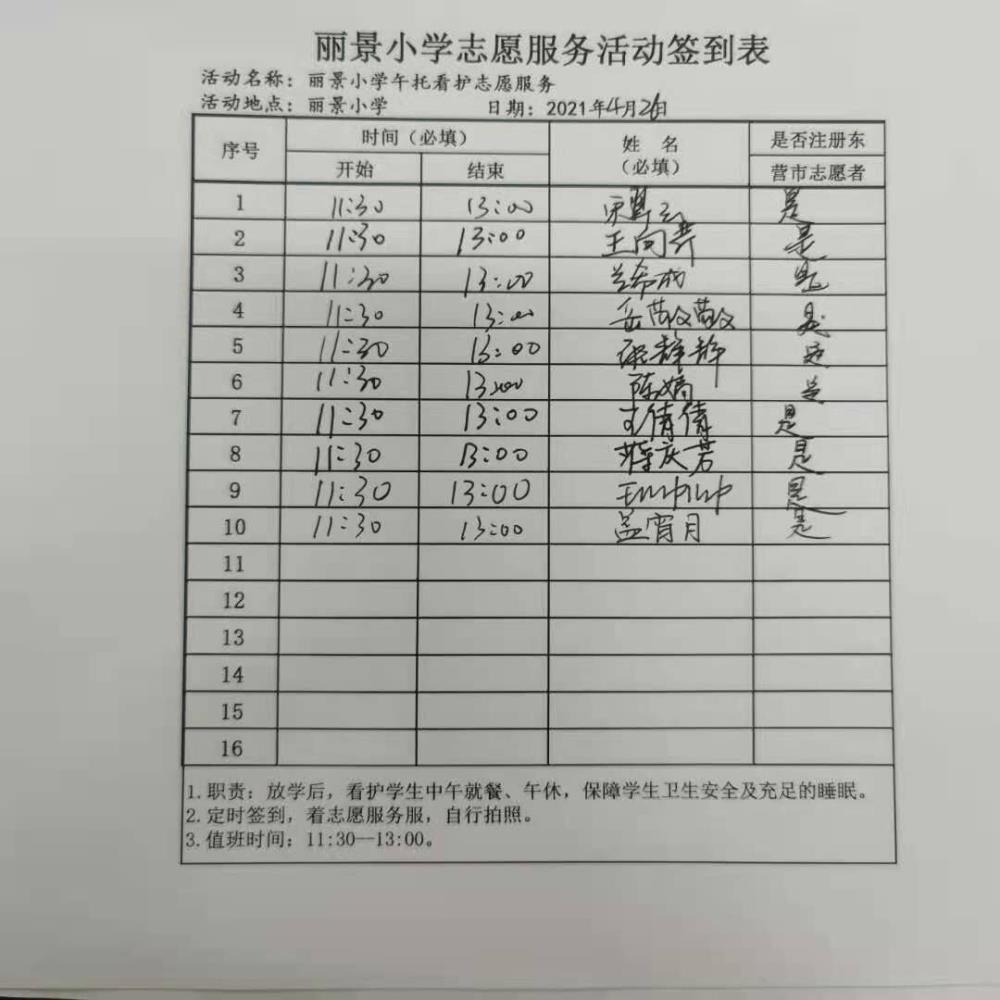 丽景小学志愿服务活动签到表
活动名称：丽景小学午托看护志愿服务
活动地点：丽景小学 日期：2021年4月26日
序号 时间（必填） 姓 名（必填） 是否注册东营市志愿者
开始 结束
1 11:30 13:00 是
2 11:30 13:00 王向 是
3 11:30 13:00 兰希成 是
4 11:30 13:00 岳敬敬 是
5 11:30 13:00 梁静静 是
6 11:30 13:00 陈嫡 是
7 11:30 13:00 倩倩 是
8 11:30 13:00 薛庆芳 是
9 11:30 13:00 王 是
10 11:30 13:00 孟宵月 是
11
12
13
14
15
16
1.职责：放学后，看护学生中午就餐、午休，保障学生卫生安全及充足的睡眠。
2.定时签到，着志愿服务服，自行拍照。
3.值班时间：11:30--13:00。